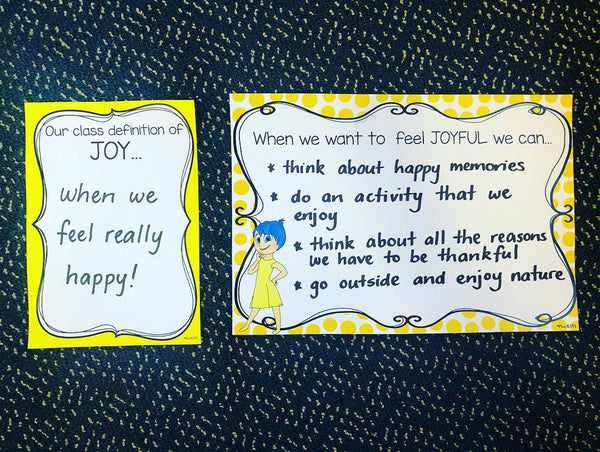 Our class definition of
JOY...
when we
feel really
happy!
When we want to feel JOYFUL we can...
* think about happy memories
* do an activity that we
enjoy
* think about all the reasons
we have to be thankful
* go outside and enjoy nature